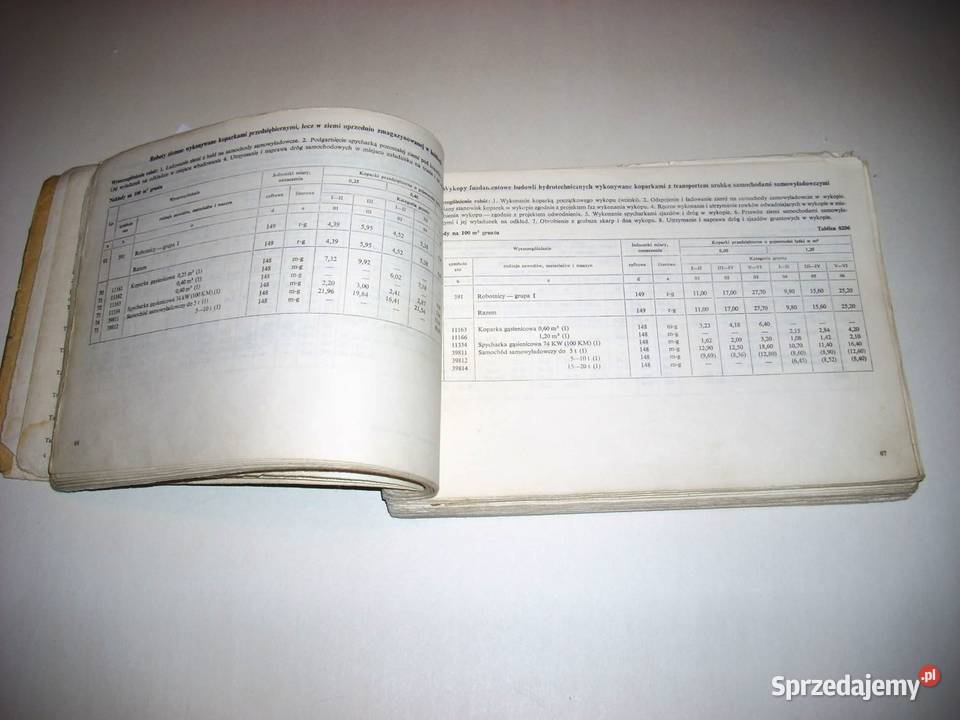 Roboty ziemne wykonywane koparkami przedsiębiernymi, lecz w ziemi uprzednio zmagazynowanej w
Wyszczególnienie robót: 1. Ładowanie ziemi z hałd na samochody samowyładowcze. 2. Podgarnięcie spycharką pozostałej ziemi pod
i jej wyładunek na odkładzie w miejscu wbudowania 4. Utrzymanie i naprawa dróg samochodowych w miejscu załadunku na trasie
Nakłady na 100 m³ gruntu
Lp. Wyszczególnienie Jednostki miary, oznaczenie Koparki przedsiębierne o
0,25 0,40
rodzaje zawodów, materiałów i maszyn cyfrowe literowe I—II III I—II III
a b c d e 01 02 03
391 Robotnicy — grupa I 149 r-g 4,39 5,95 4,52 5,38
Razem 149 r-g 4,39 5,95 4,52 5,38
70 11161 Koparka gąsienicowa 0,25 m³ (1) 148 m-g 7,12 9,92 — —
71 11162 0,40 m³ (1) 148 m-g — — 6,02
72 11163 0,60 m³ (1) 148 m-g — — —
73 11334 Spycharka gąsienicowa 74 kW (100 KM) (1) 148 m-g 2,20 3,00 2,41 2,87
74 39811 Samochód samowyładowczy do 5 t (1) 148 m-g 21,96 19,84 16,41 21,54
75 39812 5—10 t (1) 148 m-g — — —
66
Wykopy fundamentowe budowli hydrotechnicznych wykonywane koparkami z transportem urobku samochodami samowyładowczymi
robót: 1. Wykonanie koparką początkowego wykopu (wcinki). 2. Odspojenie i ładowanie ziemi na samochody samowyładowcze w wykopie.
stanowisk koparek w wykopie zgodnie z projektem faz wykonania wykopu. 4. Ręczne wykonanie i utrzymanie rowków odwadniających w wykopie
wykopu — zgodnie z projektem odwodnienia. 5. Wykonanie spycharkami zjazdów i dróg w wykopie. 6. Przewóz ziemi samochodami
i jej wyładunek na odkład. 7. Obrobienie z grubsza skarp i dna wykopu. 8. Utrzymanie i naprawa dróg i zjazdów gruntowych w wykopie.
na 100 m³ gruntu Tablica 0206
Wyszczególnienie Jednostki miary, oznaczenie Koparki przedsiębierne o pojemności łyżki w m³
0,60 1,20
symbole eto rodzaje zawodów, materiałów i maszyn cyfrowe literowe Kategoria gruntu
I—II III—IV V—VI I—II III—IV V—VI
b c d e 01 02 03 04 05 06
391 Robotnicy — grupa I 149 r-g 11,00 17,00 27,70 9,80 15,60 25,20
Razem 149 r-g 11,00 17,00 27,70 9,80 15,60 25,20
11163 Koparka gąsienicowa 0,60 m³ (1) 148 m-g 3,23 4,18 6,40 — — —
11166 1,20 m³ (1) 148 m-g — — — 2,15 2,84 4,20
11334 Spycharka gąsienicowa 74 KW (100 KM) (1) 148 m-g 1,62 2,09 3,20 1,08 1,42 2,10
39811 Samochód samowyładowczy do 5 t (1) 148 m-g 12,90 12,50 18,60 10,70 11,40 16,40
39812 5—10 t (1) 148 m-g (9,69) (8,36) (12,80) (8,60) (8,90) (12,60)
39814 15—20 t (1) 148 m-g — — — (6,45) (8,52) (8,40)
67
Sprzedajemy.pl